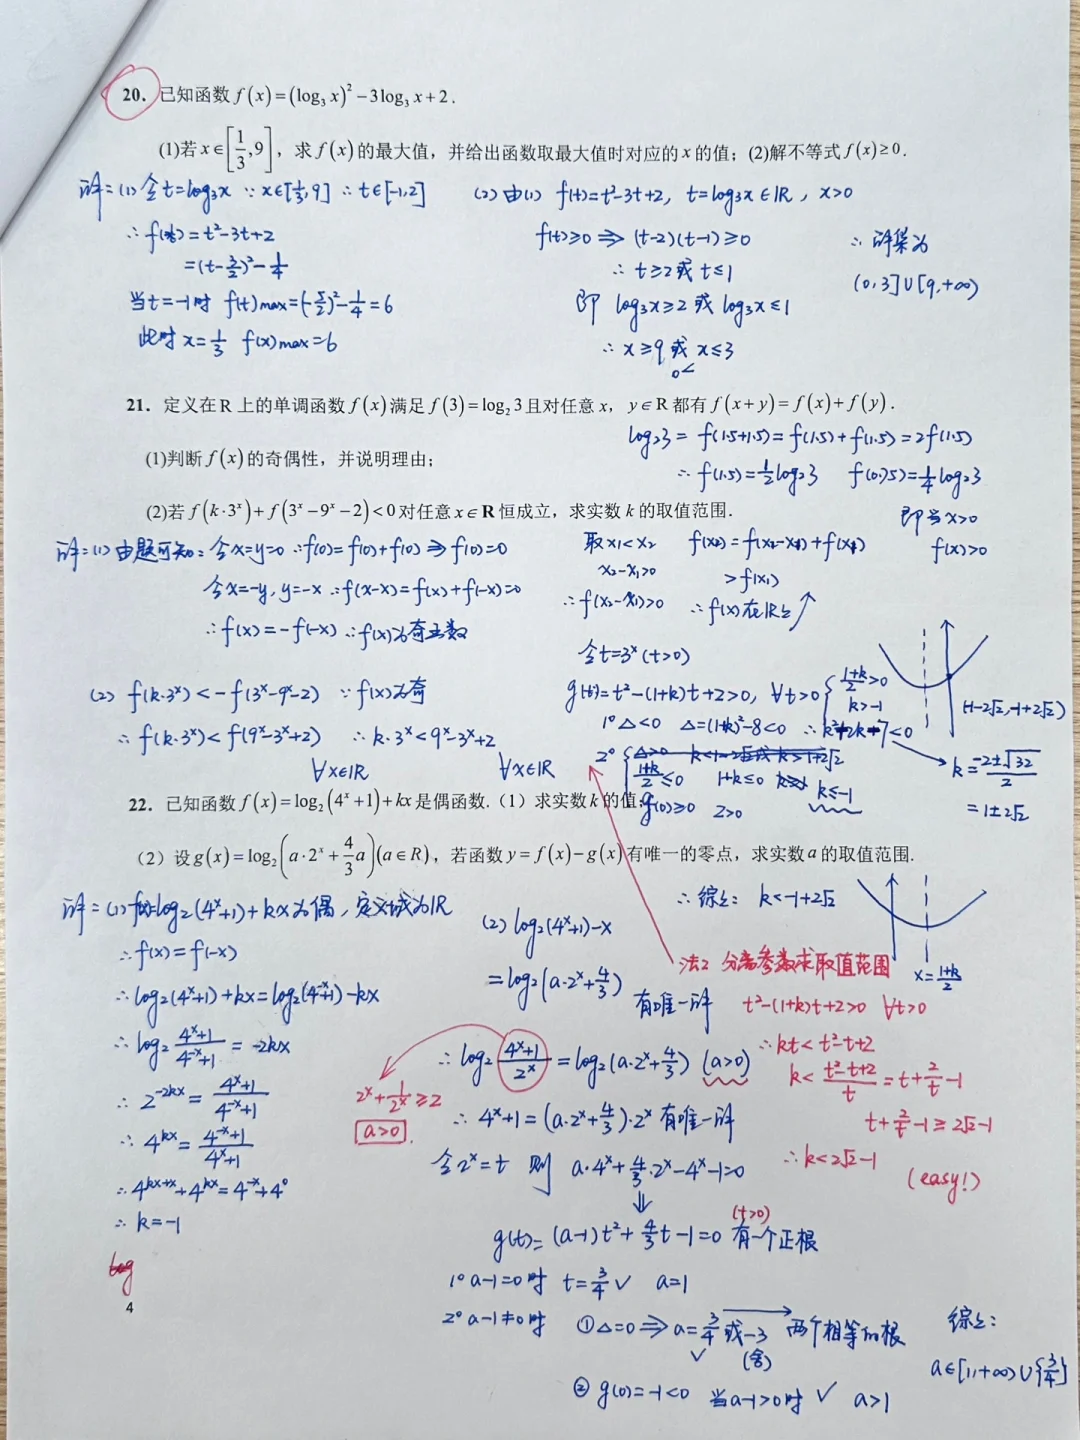 20. 已知函数 f(x)=(log₃x)²-3log₃x+2.
(1)若 x∈[1/3,9], 求 f(x) 的最大值, 并给出函数取最大值时对应的 x 的值; (2)解不等式 f(x)≥0.
解:(1) 令t=log₃x ∵x∈[1/3,9] ∴t∈[-1,2]
∴f(t)=t²-3t+2
=(t-3/2)²-1/4
当t=-1时 f(t)max=(-5/2)²-1/4=6
此时 x=1/3 f(x)max=6
(2) 由(1) f(t)=t²-3t+2, t=log₃x∈R, x>0
f(t)≥0⇒(t-2)(t-1)≥0
∴t≥2或t≤1
即 log₃x≥2或log₃x≤1
∴x≥9或 0<x≤3
∴解集为
(0,3]∪[9,+∞)
21. 定义在R上的单调函数 f(x) 满足 f(3)=log₂3 且对任意 x, y∈R 都有 f(x+y)=f(x)+f(y).
(1)判断 f(x) 的奇偶性, 并说明理由;
(2)若 f(k·3ˣ)+f(3ˣ-9ˣ-2)<0 对任意 x∈R 恒成立, 求实数 k 的取值范围.
log₂3=f(1.5+1.5)=f(1.5)+f(1.5)=2f(1.5)
∴f(1.5)=1/2log₂3 f(0.75)=1/4log₂3
即当x>0
f(x)>0
解:(1) 由题可知: 令x=y=0 ∴f(0)=f(0)+f(0)⇒f(0)=0
令x=-y, y=-x ∴f(x-x)=f(x)+f(-x)=0
∴f(x)=-f(-x) ∴f(x)为奇函数
取x₁<x₂ f(x₂)=f(x₂-x₁)+f(x₁)
x₂-x₁>0 >f(x₁)
∴f(x₂-x₁)>0 ∴f(x)在R上↗
(2) f(k·3ˣ)<-f(3ˣ-9ˣ-2) ∵f(x)为奇
∴f(k·3ˣ)<f(9ˣ-3ˣ+2) ∴k·3ˣ<9ˣ-3ˣ+2
∀x∈R ∀x∈R
令t=3ˣ(t>0)
g(t)=t²-(1+k)t+2>0, ∀t>0
1° Δ<0 Δ=(1+k)²-8<0 ∴k²+2k-7<0
(1+k)/2>0
k>-1
(-1-2√2,-1+2√2)
k=(-2±√32)/2
=1±2√2
2° Δ>0 k<-1-2√2或k>-1+2√2
(1+k)/2≤0 1+k≤0 k≤-1
g(0)≥0 2>0
∴综上: k<-1+2√2
x=(1+k)/2
法2 分离参数求取值范围
t²-(1+k)t+2>0 ∀t>0
∴kt<t²-t+2
k<(t²-t+2)/t=t+2/t-1
t+2/t-1≥2√2-1
∴k<2√2-1
(easy!)
22. 已知函数 f(x)=log₂(4ˣ+1)+kx 是偶函数.(1)求实数 k 的值;
(2)设 g(x)=log₂(a·2ˣ+4/3a)(a∈R), 若函数 y=f(x)-g(x) 有唯一的零点, 求实数 a 的取值范围.
解:(1) f(x)=log₂(4ˣ+1)+kx为偶, 定义域为R
∴f(x)=f(-x)
∴log₂(4ˣ+1)+kx=log₂(4⁻ˣ+1)-kx
∴log₂(4ˣ+1)/(4⁻ˣ+1)=-2kx
∴2⁻²ᵏˣ=(4ˣ+1)/(4⁻ˣ+1)
∴4ᵏˣ=(4⁻ˣ+1)/(4ˣ+1)
∴4ᵏˣ⁺ˣ+4ᵏˣ=4⁻ˣ+4⁰
∴k=-1
log
(2) log₂(4ˣ+1)-x
=log₂(a·2ˣ+4/3)
有唯一解
∴log₂(4ˣ+1)/2ˣ=log₂(a·2ˣ+4/3) (a>0)
2ˣ+1/2ˣ≥2
a>0
∴4ˣ+1=(a·2ˣ+4/3)·2ˣ有唯一解
令2ˣ=t 则 a·4ˣ+4/3·2ˣ-4ˣ-1=0
⇓
g(t)=(a-1)t²+4/3t-1=0 (t>0) 有一个正根
1° a-1=0时 t=3/4✓ a=1
2° a-1≠0时 ①Δ=0⇒a=3/4或-3 两个相等的根
✓ (舍)
②g(0)=-1<0 当a-1>0时✓ a>1
综上:
a∈[1,+∞)∪{3/4}
4